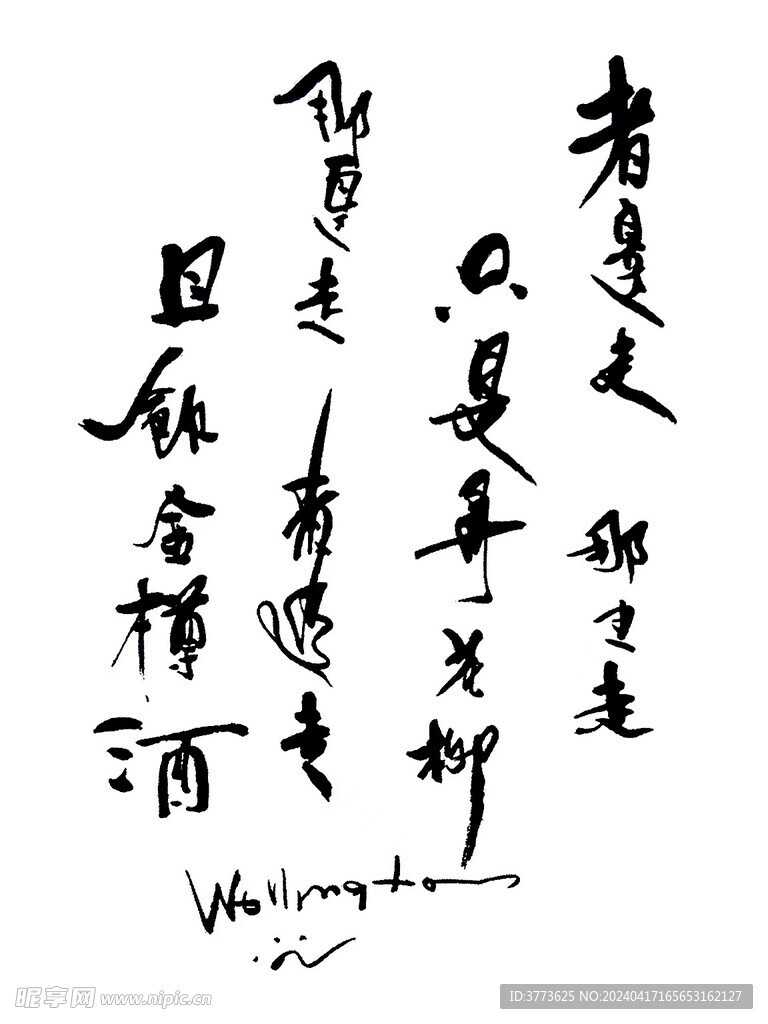 者邊走 那边走
只是尋花柳
那邊走 者邊走
且飲金樽酒
Wellington
昵享网 www.nipic.cn
ID:3773625 NO:20240417165653162127